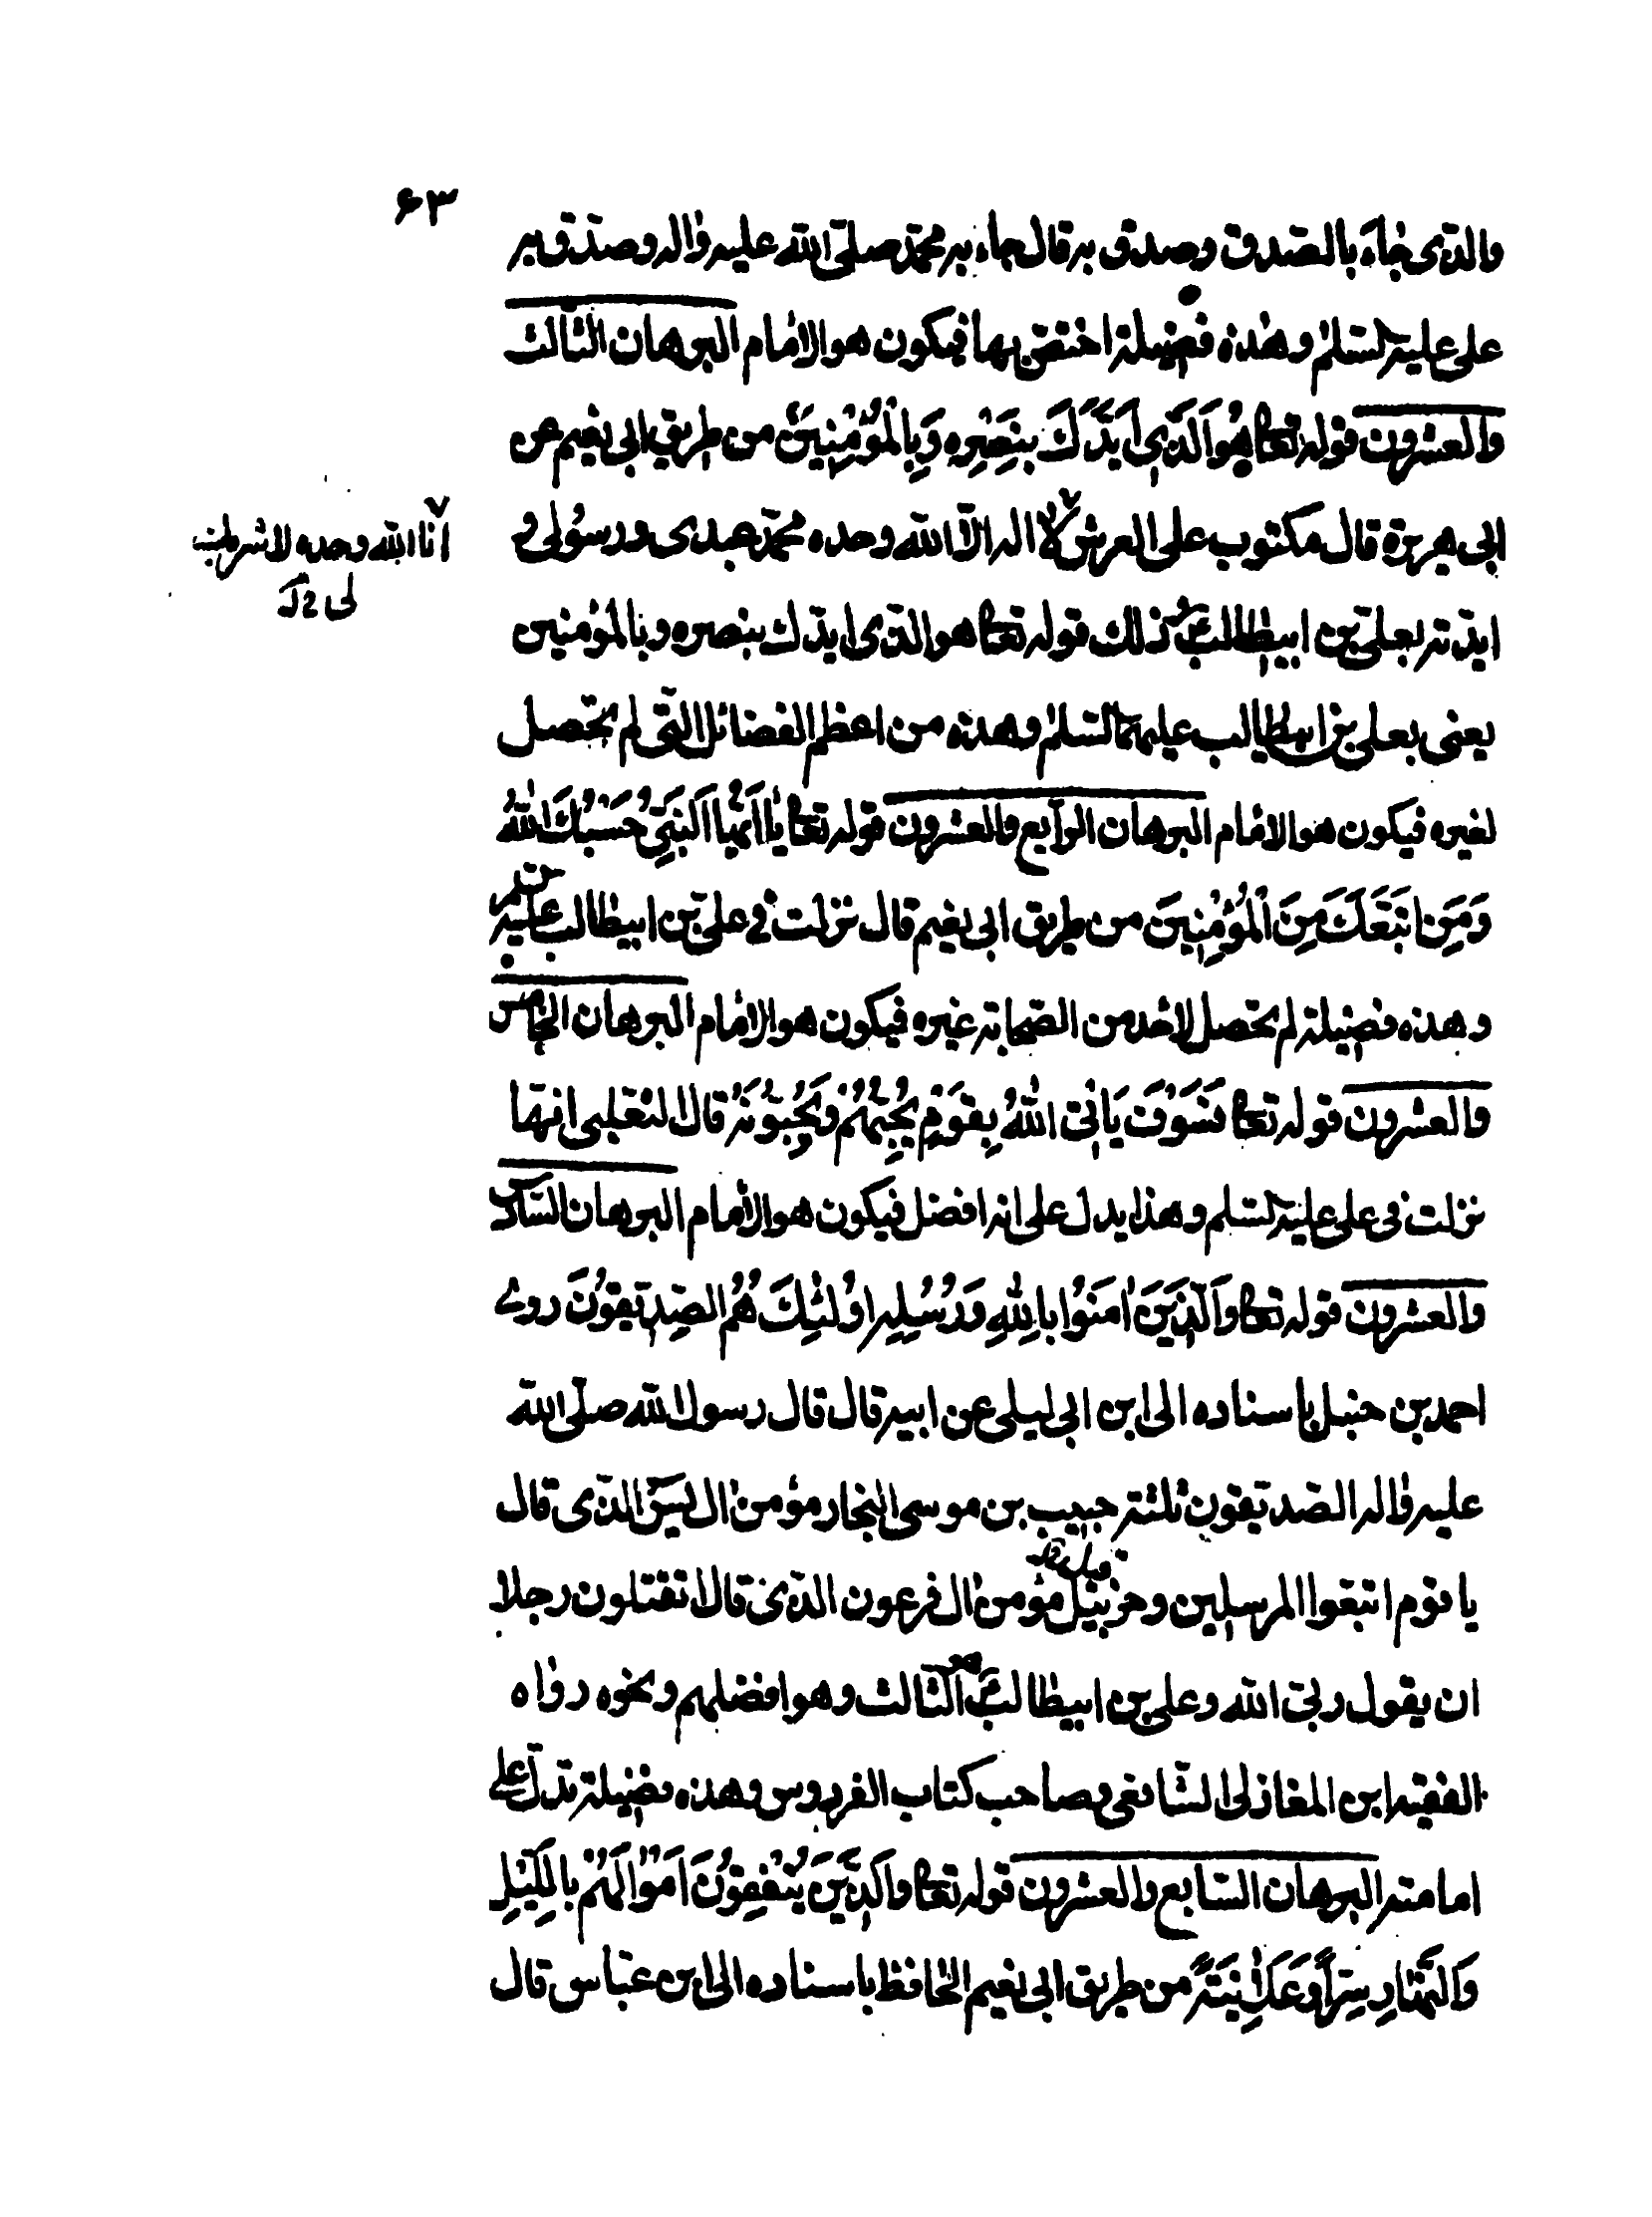 ۶۳
والذی جاء بالصدق وصدق به قال جاء به محمّد صلّی الله علیه واله وصدّق به
علی علیه السّلم وهذه فضیلة اختصّ بها فیکون هو الامام البرهان الثالث
والعشرون قوله تعا هُوَ الَّذی اَیَّدَكَ بِنَصْرِه وَبِالْمُؤْمِنِینَ من طریق ابی نعیم عن
ابی هریرة قال مکتوب علی العرش لا اله الّا الله وحده محمّد عبدی ورسولی و
انا الله وحده لا شریك
لی ۲ ك
ایّدته بعلیّ بن ابیطالب ذلك قوله تعا هو الذی ایّدك بنصره وبالمؤمنین
یعنی بعلی بن ابیطالب علیهما السّلم وهذه من اعظم الفضائل الّتی لم تحصل
لغیره فیکون هو الامام البرهان الرّابع والعشرون قوله تعا یا اَیُّهَا النَّبِیُّ حَسْبُكَ اللهُ
وَمَنِ اتَّبَعَكَ مِنَ الْمُؤْمِنِینَ من طریق ابی نعیم قال نزلت فی علیّ بن ابیطالب علیه
وهذه فضیلة لم تحصل لاحد من الصّحابة غیره فیکون هو الامام البرهان الخامس
والعشرون قوله تعا فَسَوْفَ یَاْتِی اللهُ بِقَوْمٍ یُحِبُّهُمْ وَیُحِبُّونَهُ قال الثعلبی انّها
نزلت فی علی علیه السّلم وهذا یدل علی انه افضل فیکون هو الامام البرهان السّادس
والعشرون قوله تعا وَالَّذِینَ اٰمَنُوا بِاللهِ وَرُسُلِهِ اُولٰئِكَ هُمُ الصِّدِّیقُونَ روی
احمد بن حنبل باسناده الی ابن ابی لیلی عن ابیه قال قال رسول الله صلّی الله
علیه واله الصّدیقون ثلثة حبیب بن موسی النجار مؤمن ال یسٓ الذی قال
یا قوم اتبعوا المرسلین وحزبیل مؤمن ال فرعون الذی قال اتقتلون رجلا
ان یقول ربی الله وعلی بن ابیطالب الثالث وهو افضلهم ونحوه رواه
الفقیه ابن المغازلی الشّافعی وصاحب کتاب الفردوس وهذه فضیلة تدلّ علی
امامته البرهان السّابع والعشرون قوله تعا وَالَّذِینَ یُنْفِقُونَ اَمْوَالَهُمْ بِاللَّیْلِ
وَالنَّهَارِ سِرّاً وَعَلَانِیَةً من طریق ابی نعیم الحافظ باسناده الی ابن عبّاس قال